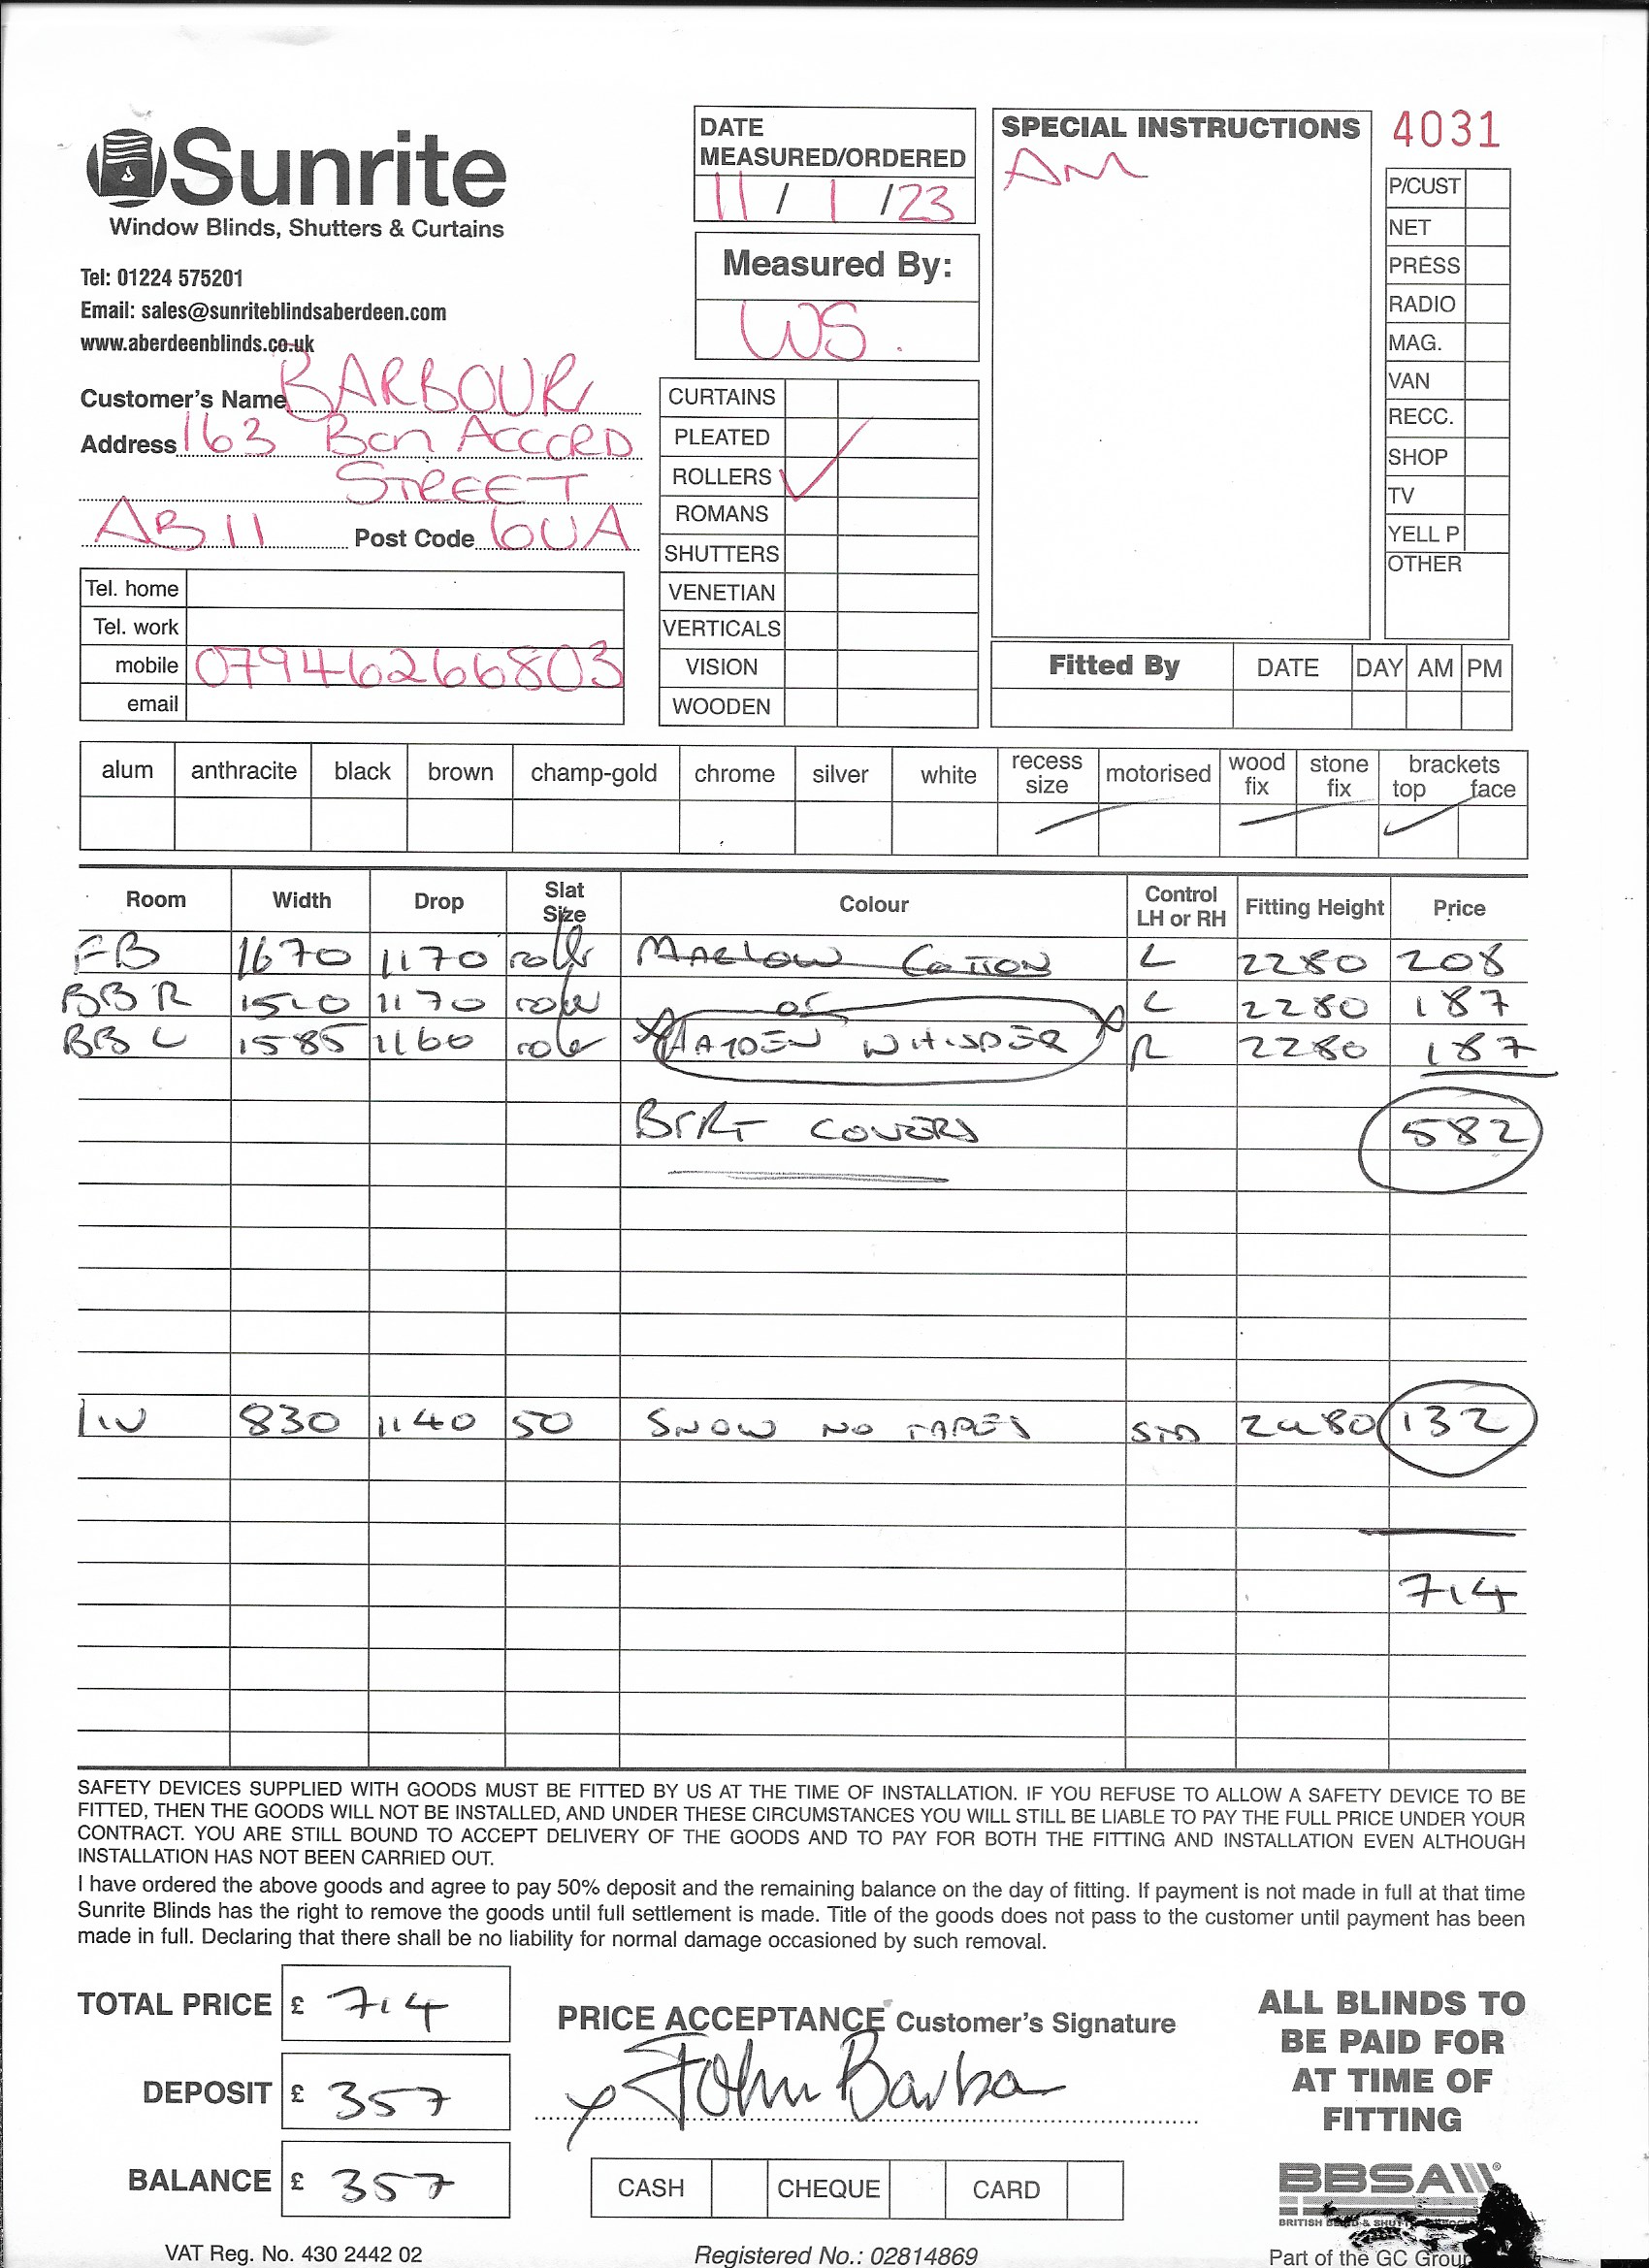 Sunrite
Window Blinds, Shutters & Curtains
Tel: 01224 575201
Email: sales@sunriteblindsaberdeen.com
www.aberdeenblinds.co.uk
Customer's Name BARBOUR
Address 163 Bon ACCORD
STREET
AB11 Post Code 6UA
Tel. home
Tel. work
mobile 07946266803
email
DATE
MEASURED/ORDERED
11 / 1 / 23
Measured By:
WS.
CURTAINS
PLEATED
ROLLERS ✓
ROMANS
SHUTTERS
VENETIAN
VERTICALS
VISION
WOODEN
SPECIAL INSTRUCTIONS
AM
4031
P/CUST
NET
PRESS
RADIO
MAG.
VAN
RECC.
SHOP
TV
YELL P
OTHER
Fitted By DATE DAY AM PM
alum anthracite black brown champ-gold chrome silver white recess size motorised wood fix stone fix brackets top face
Room Width Drop Slat Size Colour Control LH or RH Fitting Height Price
FB 1670 1170 roller MARLOW COTTON L 2280 208
BBR 1520 1170 roller or L 2280 187
BBL 1585 1160 roller WHISPER R 2280 187
COVERS 582
830 1140 50 SNOW NO TAPES STD 2480 132
714
SAFETY DEVICES SUPPLIED WITH GOODS MUST BE FITTED BY US AT THE TIME OF INSTALLATION. IF YOU REFUSE TO ALLOW A SAFETY DEVICE TO BE
FITTED, THEN THE GOODS WILL NOT BE INSTALLED, AND UNDER THESE CIRCUMSTANCES YOU WILL STILL BE LIABLE TO PAY THE FULL PRICE UNDER YOUR
CONTRACT. YOU ARE STILL BOUND TO ACCEPT DELIVERY OF THE GOODS AND TO PAY FOR BOTH THE FITTING AND INSTALLATION EVEN ALTHOUGH
INSTALLATION HAS NOT BEEN CARRIED OUT.
I have ordered the above goods and agree to pay 50% deposit and the remaining balance on the day of fitting. If payment is not made in full at that time
Sunrite Blinds has the right to remove the goods until full settlement is made. Title of the goods does not pass to the customer until payment has been
made in full. Declaring that there shall be no liability for normal damage occasioned by such removal.
TOTAL PRICE £ 714
DEPOSIT £ 357
BALANCE £ 357
PRICE ACCEPTANCE Customer's Signature
x John Barbo
CASH CHEQUE CARD
ALL BLINDS TO
BE PAID FOR
AT TIME OF
FITTING
BBSA
BRITISH
VAT Reg. No. 430 2442 02
Registered No.: 02814869
Part of the GC Grou